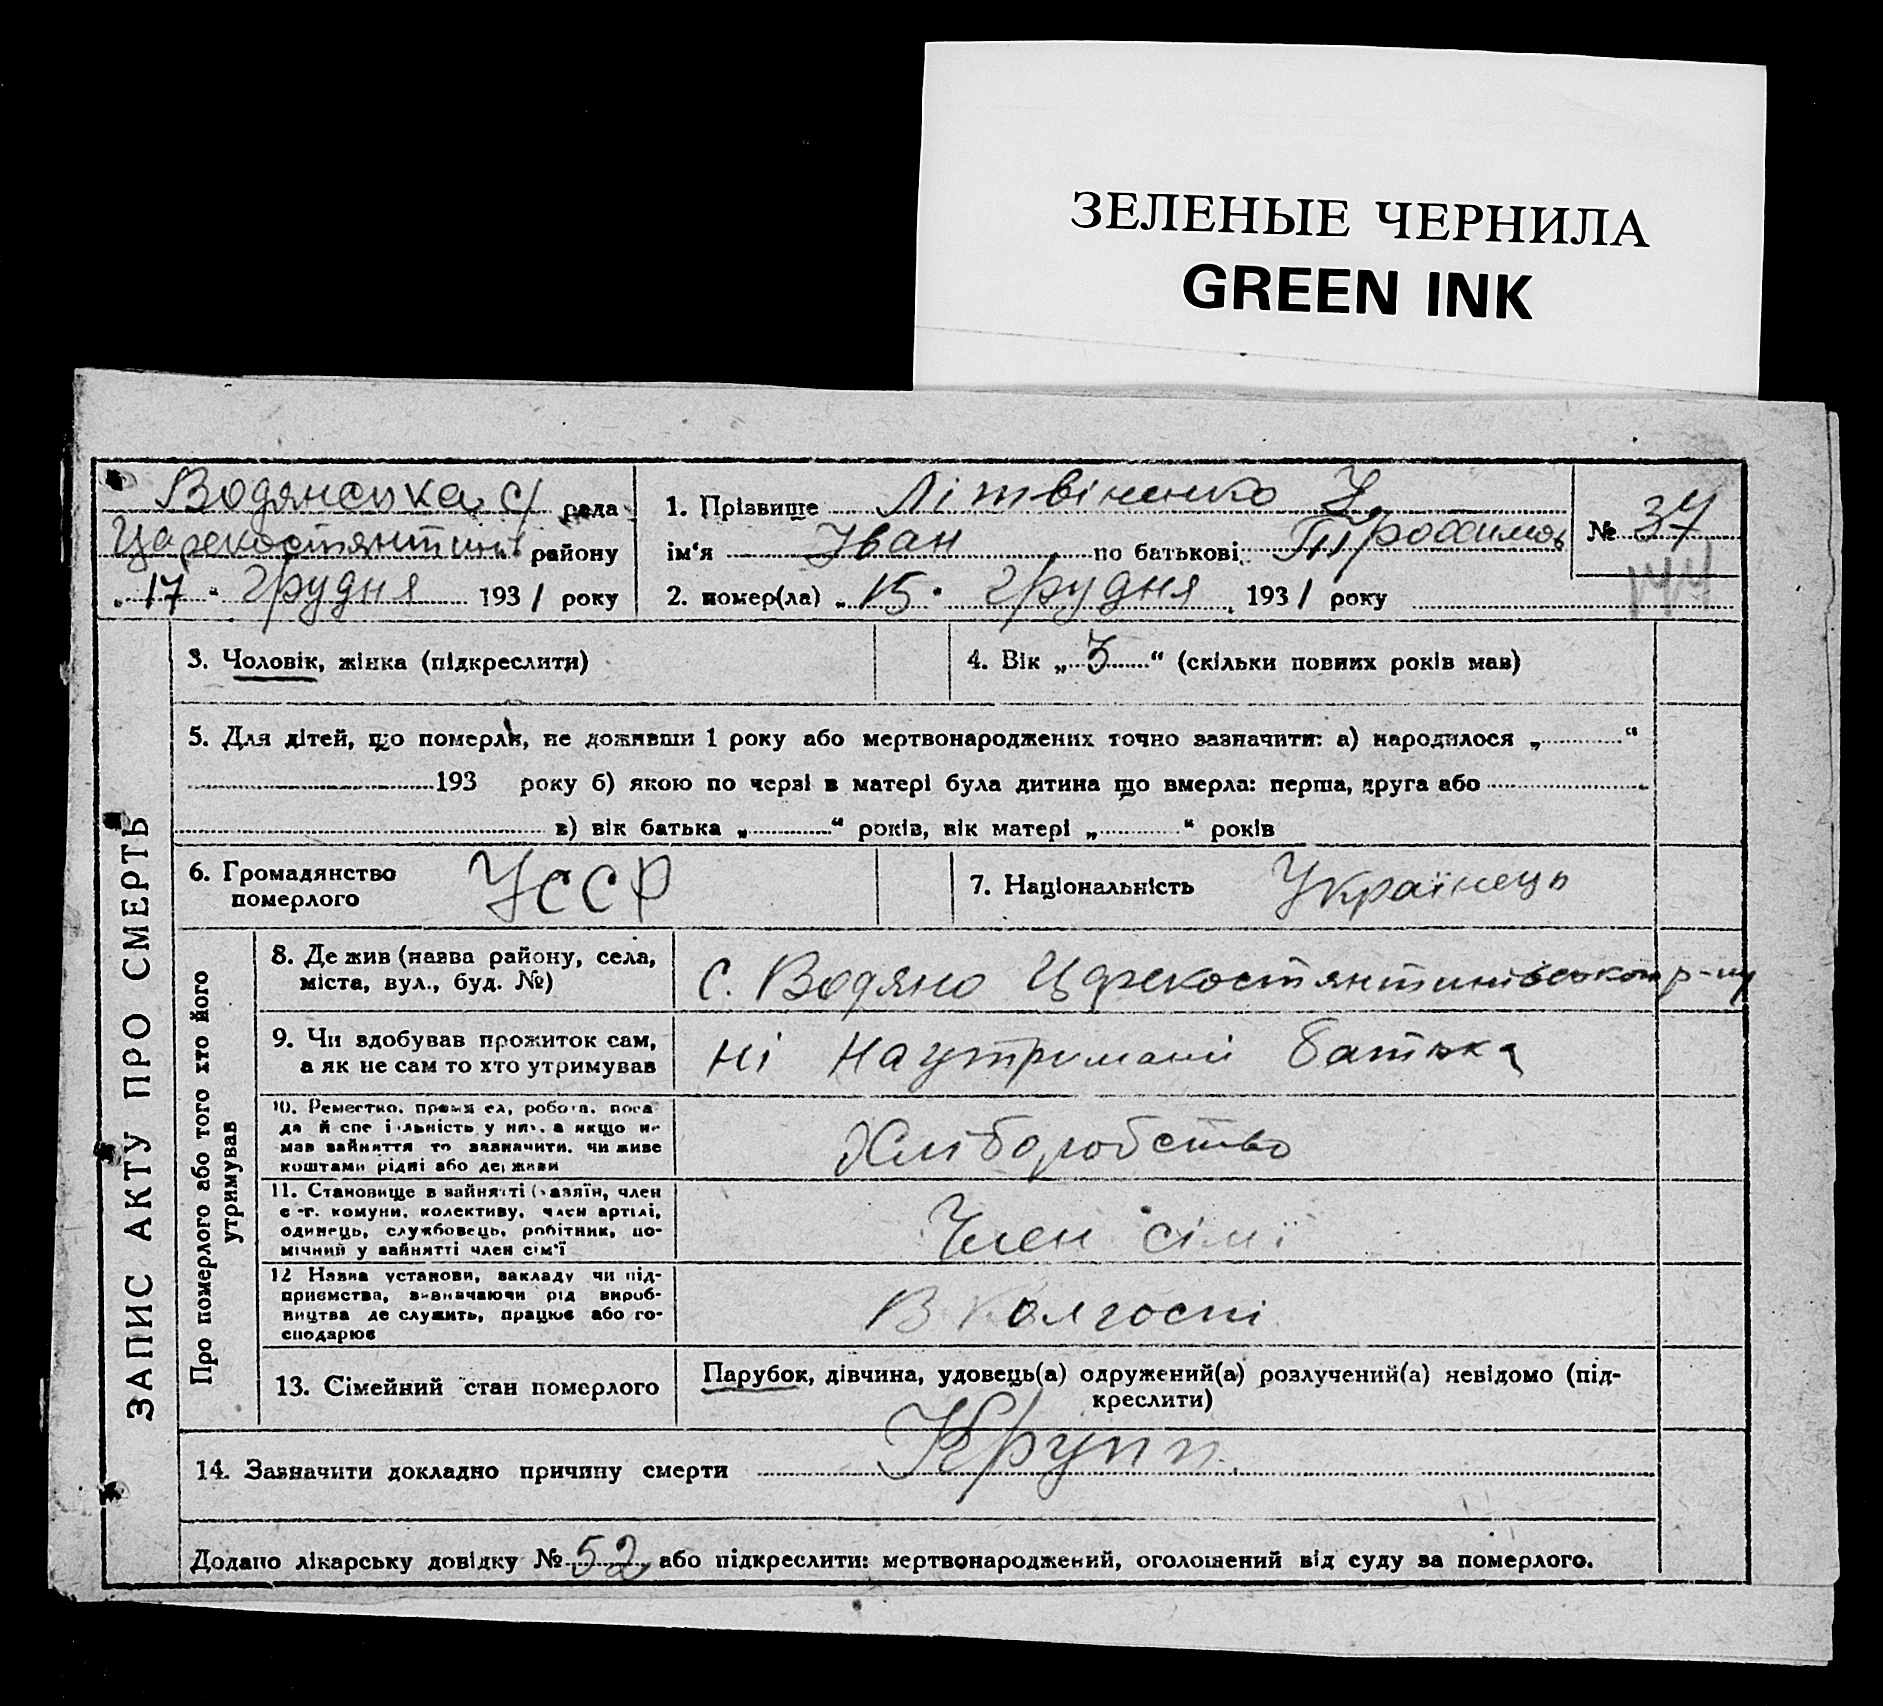 ЗЕЛЕНЫЕ ЧЕРНИЛА
GREEN INK
Водянська с/ рада
Царекостянтинів району
„17“ грудня 1931 року
1. Прізвище Літвіненко
ім‘я Іван по батькові Трохимов
2. помер(ла) „15“ грудня 1931 року
№ 37
144
ЗАПИС АКТУ ПРО СМЕРТЬ
3. Чоловік, жінка (підкреслити)
4. Вік „3“ (скільки повних років мав)
5. Для дітей, що померли, не доживши 1 року або мертвонароджених точно зазначити: а) народилося „ “
193 року б) якою по черзі в матері була дитина що вмерла: перша, друга або
в) вік батька „ “ років, вік матері „ “ років
6. Громадянство
померлого
УССР
7. Національність Українець
Про померлого або того хто його
утримував
8. Де жив (назва району, села,
міста, вул., буд. №)
с. Водяно Царекостянтинівського р-ну
9. Чи здобував прожиток сам,
а як не сам то хто утримував
ні на утриманні батька
10. Ремество, промисел, робота, поса
да й спеціяльність у них, а якщо не
мав зайняття то зазначити, чи живе
коштами рідні або держави
Хліборобство
11. Становище в зайнятті (хазяїн, член
с.-г. комуни, колективу, член артілі,
одинець, службовець, робітник, по-
мічний у зайнятті член сім‘ї
Член сімї
12 Назва установи, закладу чи під-
приємства, визначаючи рід вироб-
ництва де служить, працює або го-
сподарює
В колгоспі
13. Сімейний стан померлого
Парубок, дівчина, удовець(а) одружений(а) розлучений(а) невідомо (під-
креслити)
14. Зазначити докладно причину смерти Крупп
Додано лікарську довідку № 52 або підкреслити: мертвонароджений, оголошений від суду за померлого.